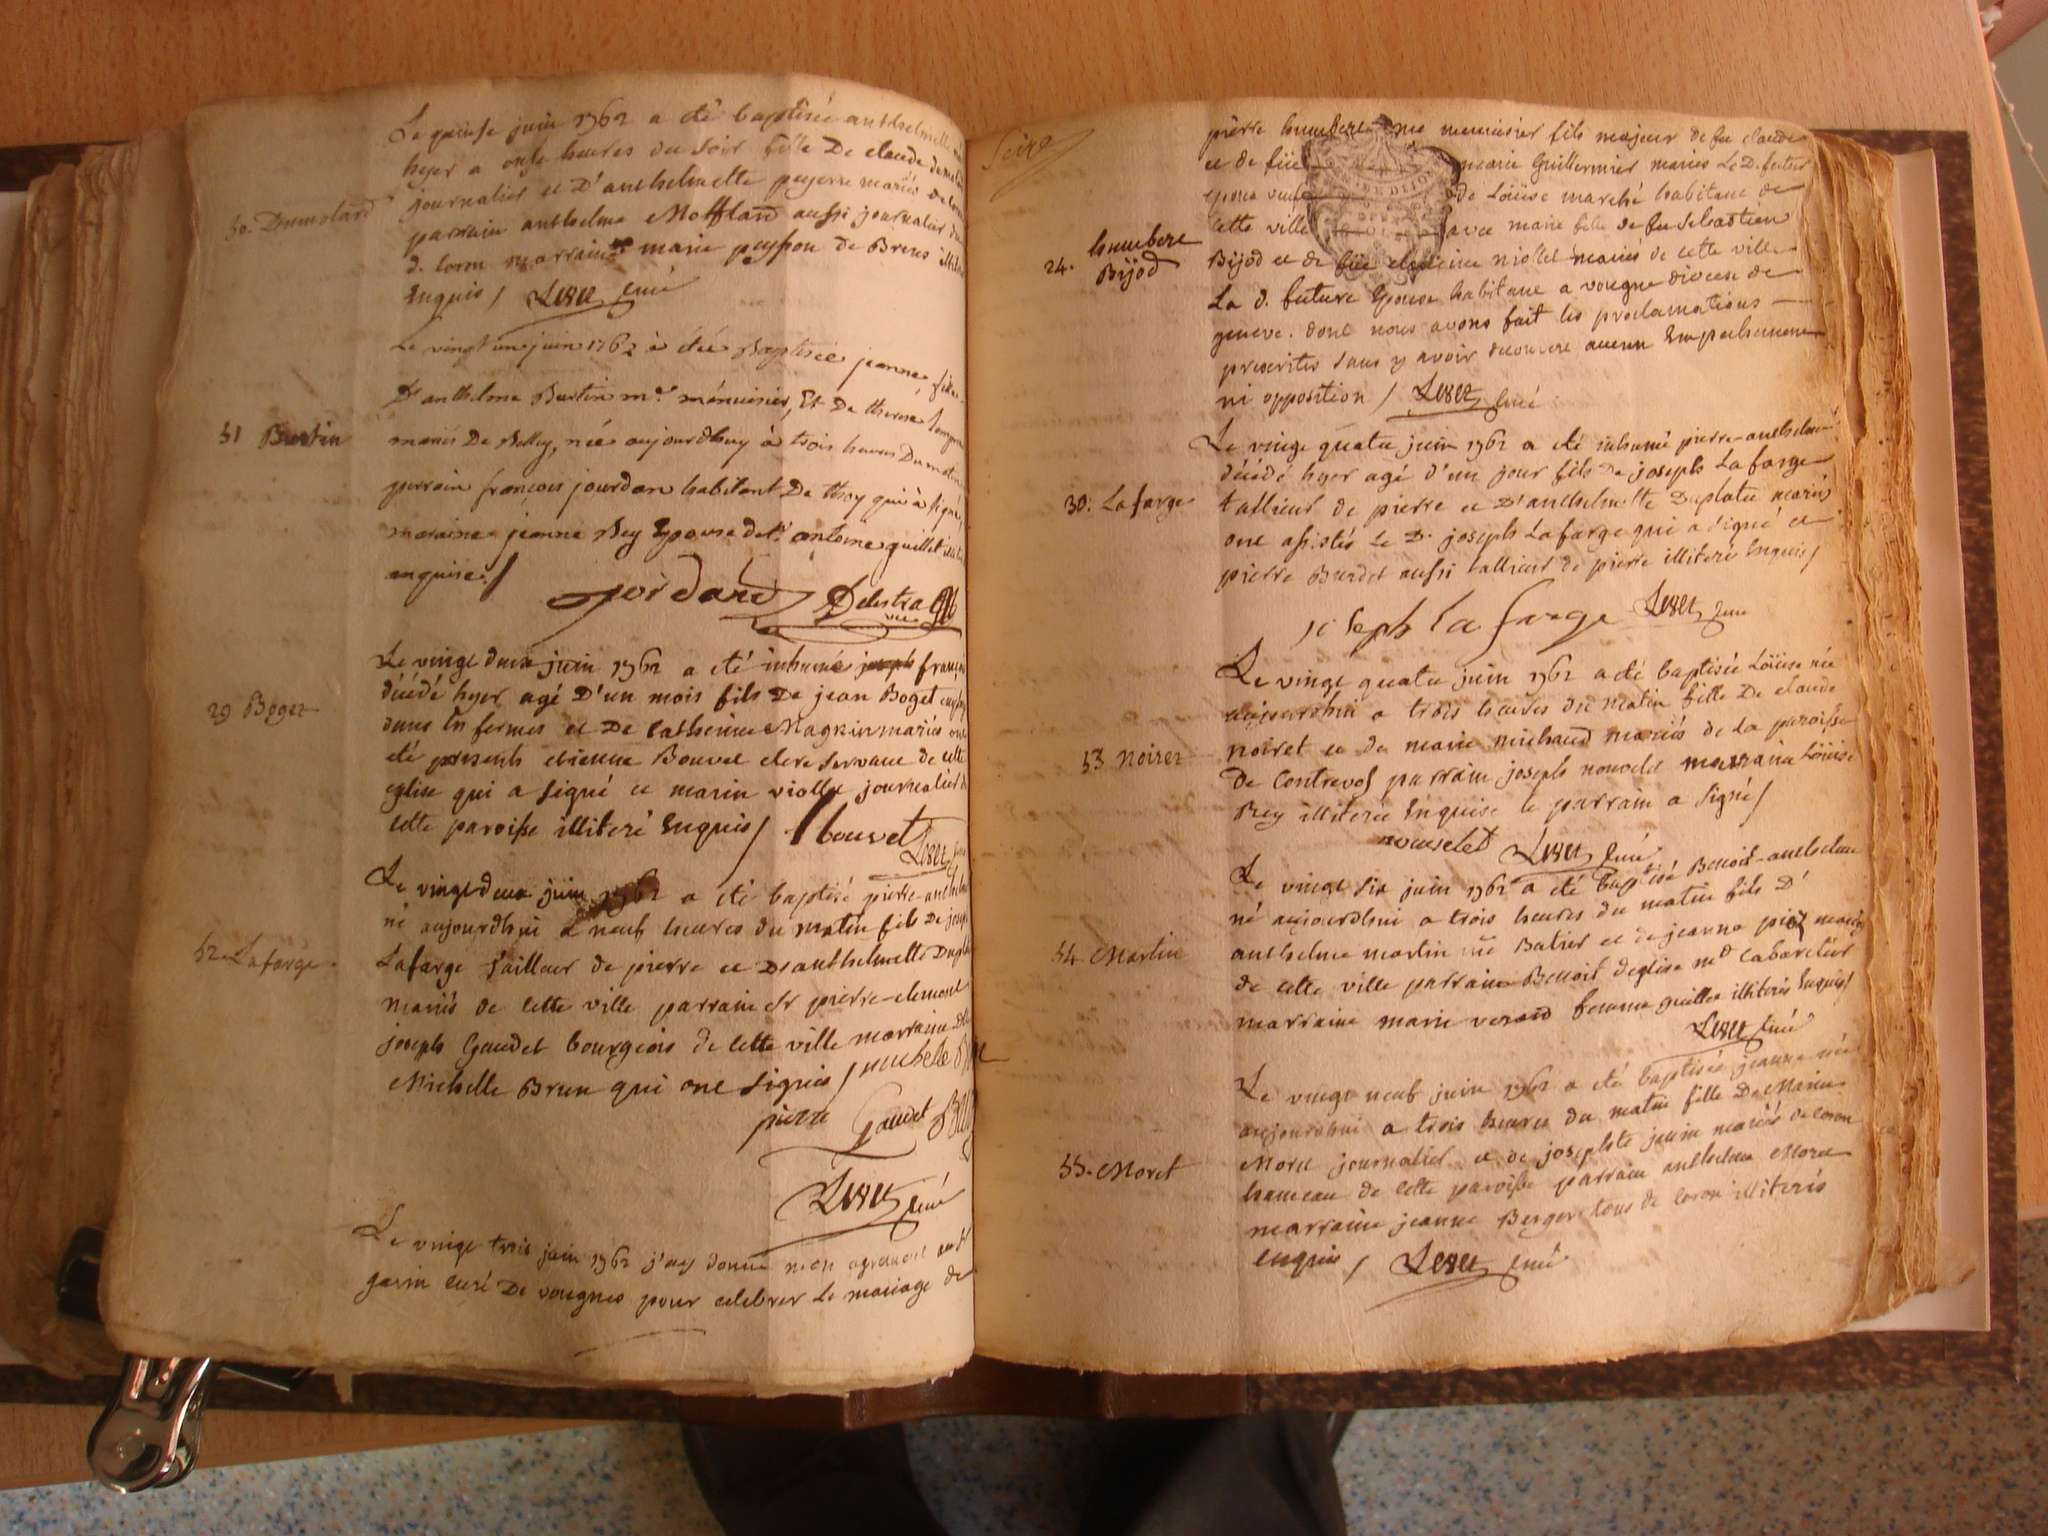 Le quinse juin 1762 a eté baptisée anthelmette née
hyer a onse heures du soir fille De claude dumolard
50. Dumolard
journalier et D'anthelmette peyserre mariés De coron
parrain anthelme Mofflard aussi journalier du
d. coron marraine marie peysson de Brens illiteres
Enquis / Leset curé
Le vingt un juin 1762 à étée Baptisée jeanne, fille
D'anthelme Burtin me. ménuisier, Et De therese
51 Burtin
mariés De Belley, née aujourdhuy à trois heures Du matin
parrain francois jourdan habitant De thoy qui à signé,
maraine jeanne Bey Epouse de antoine guillet illiterée
enquise /
jordand Delestra
vic
Le vingt deux juin 1762 a eté inhumé joseph françois
décédé hyer agé D'un mois fils De jean Boget employé
29 Boget
dans les fermes et De Catherine Magnin mariés ont
eté presents etienne Bouvet clerc servant de cette
eglise qui a signé et marin viollet journalier de
cette paroisse illiteré Enquis / bouvet
Leset curé
Le vingt deux juin 1762 a eté baptisé pierre-anthelme
né aujourdhui a neuf heures du matin fils De joseph
52. Lafarge
Lafarge tailleur de pierre et D'anthelmette Duplatre
mariés de cette ville parrain Sr pierre-clement
joseph Gaudet bourgeois de cette ville marraine Dlle
Michelle Brun qui ont signés / michele Brun
pierre Gaudet
Leset curé
Le vingt trois juin 1762 j'ay donné mon agrement au Sr
garin curé De vongnes pour celebrer le mariage de
Seize
pierre humbert me menuisier fils majeur de feu claude
et de füe marie Guillermier mariés Le D. futur
Epoux veuf de Loüise marché habitant de
cette ville avec marie fille de feu Sebastien
24. humbert
Bijod
Bijod et de füe claudine niollet mariés de cette ville
La d. future Epouse habitant a vongne diocese de
geneve. dont nous avons fait les proclamations
prescrites sans y avoir decouvert aucun Empechement
ni opposition / Leset curé
Le vingt quatre juin 1762 a eté inhumé pierre-anthelme
décédé hyer agé d'un jour fils De joseph Lafarge
30. Lafarge
tallieur de pierre et D'anthelmette Duplatre mariés
ont assistés Le D. joseph Lafarge qui a signé et
pierre Burdet aussi tallieur de pierre illiteré Enquis /
joseph la farge Leset curé
Le vingt quatre juin 1762 a eté baptisée Loüise née
aujourdhui a trois heures du matin fille De claude
53 Noiret
noiret et de marie michaud mariés de la paroisse
De Contrevos parrain joseph nouvelet marraine Loüise
Rey illiterée Enquise le parrain a signé /
nouvelet Leset curé
Le vingt six juin 1762 a eté baptisé Benoit-anthelme
né aujourdhui a trois heures du matin fils D'
54 Martin
anthelme martin me Batier et de jeanne piot mariés
de cette ville parrain Benoit deglise md cabaretier
marraine marie verand femme guillet illiterés Enquis /
Leset curé
Le vingt neuf juin 1762 a eté baptisée jeanne née
aujourdhui a trois heures du matin fille De Marin
55. Moret
Moret journalier et de josephte juvin mariés de coron
hameau de cette paroisse parrain anthelme Moret
marraine jeanne Berger tous de coron illiterés
enquis / Leset curé